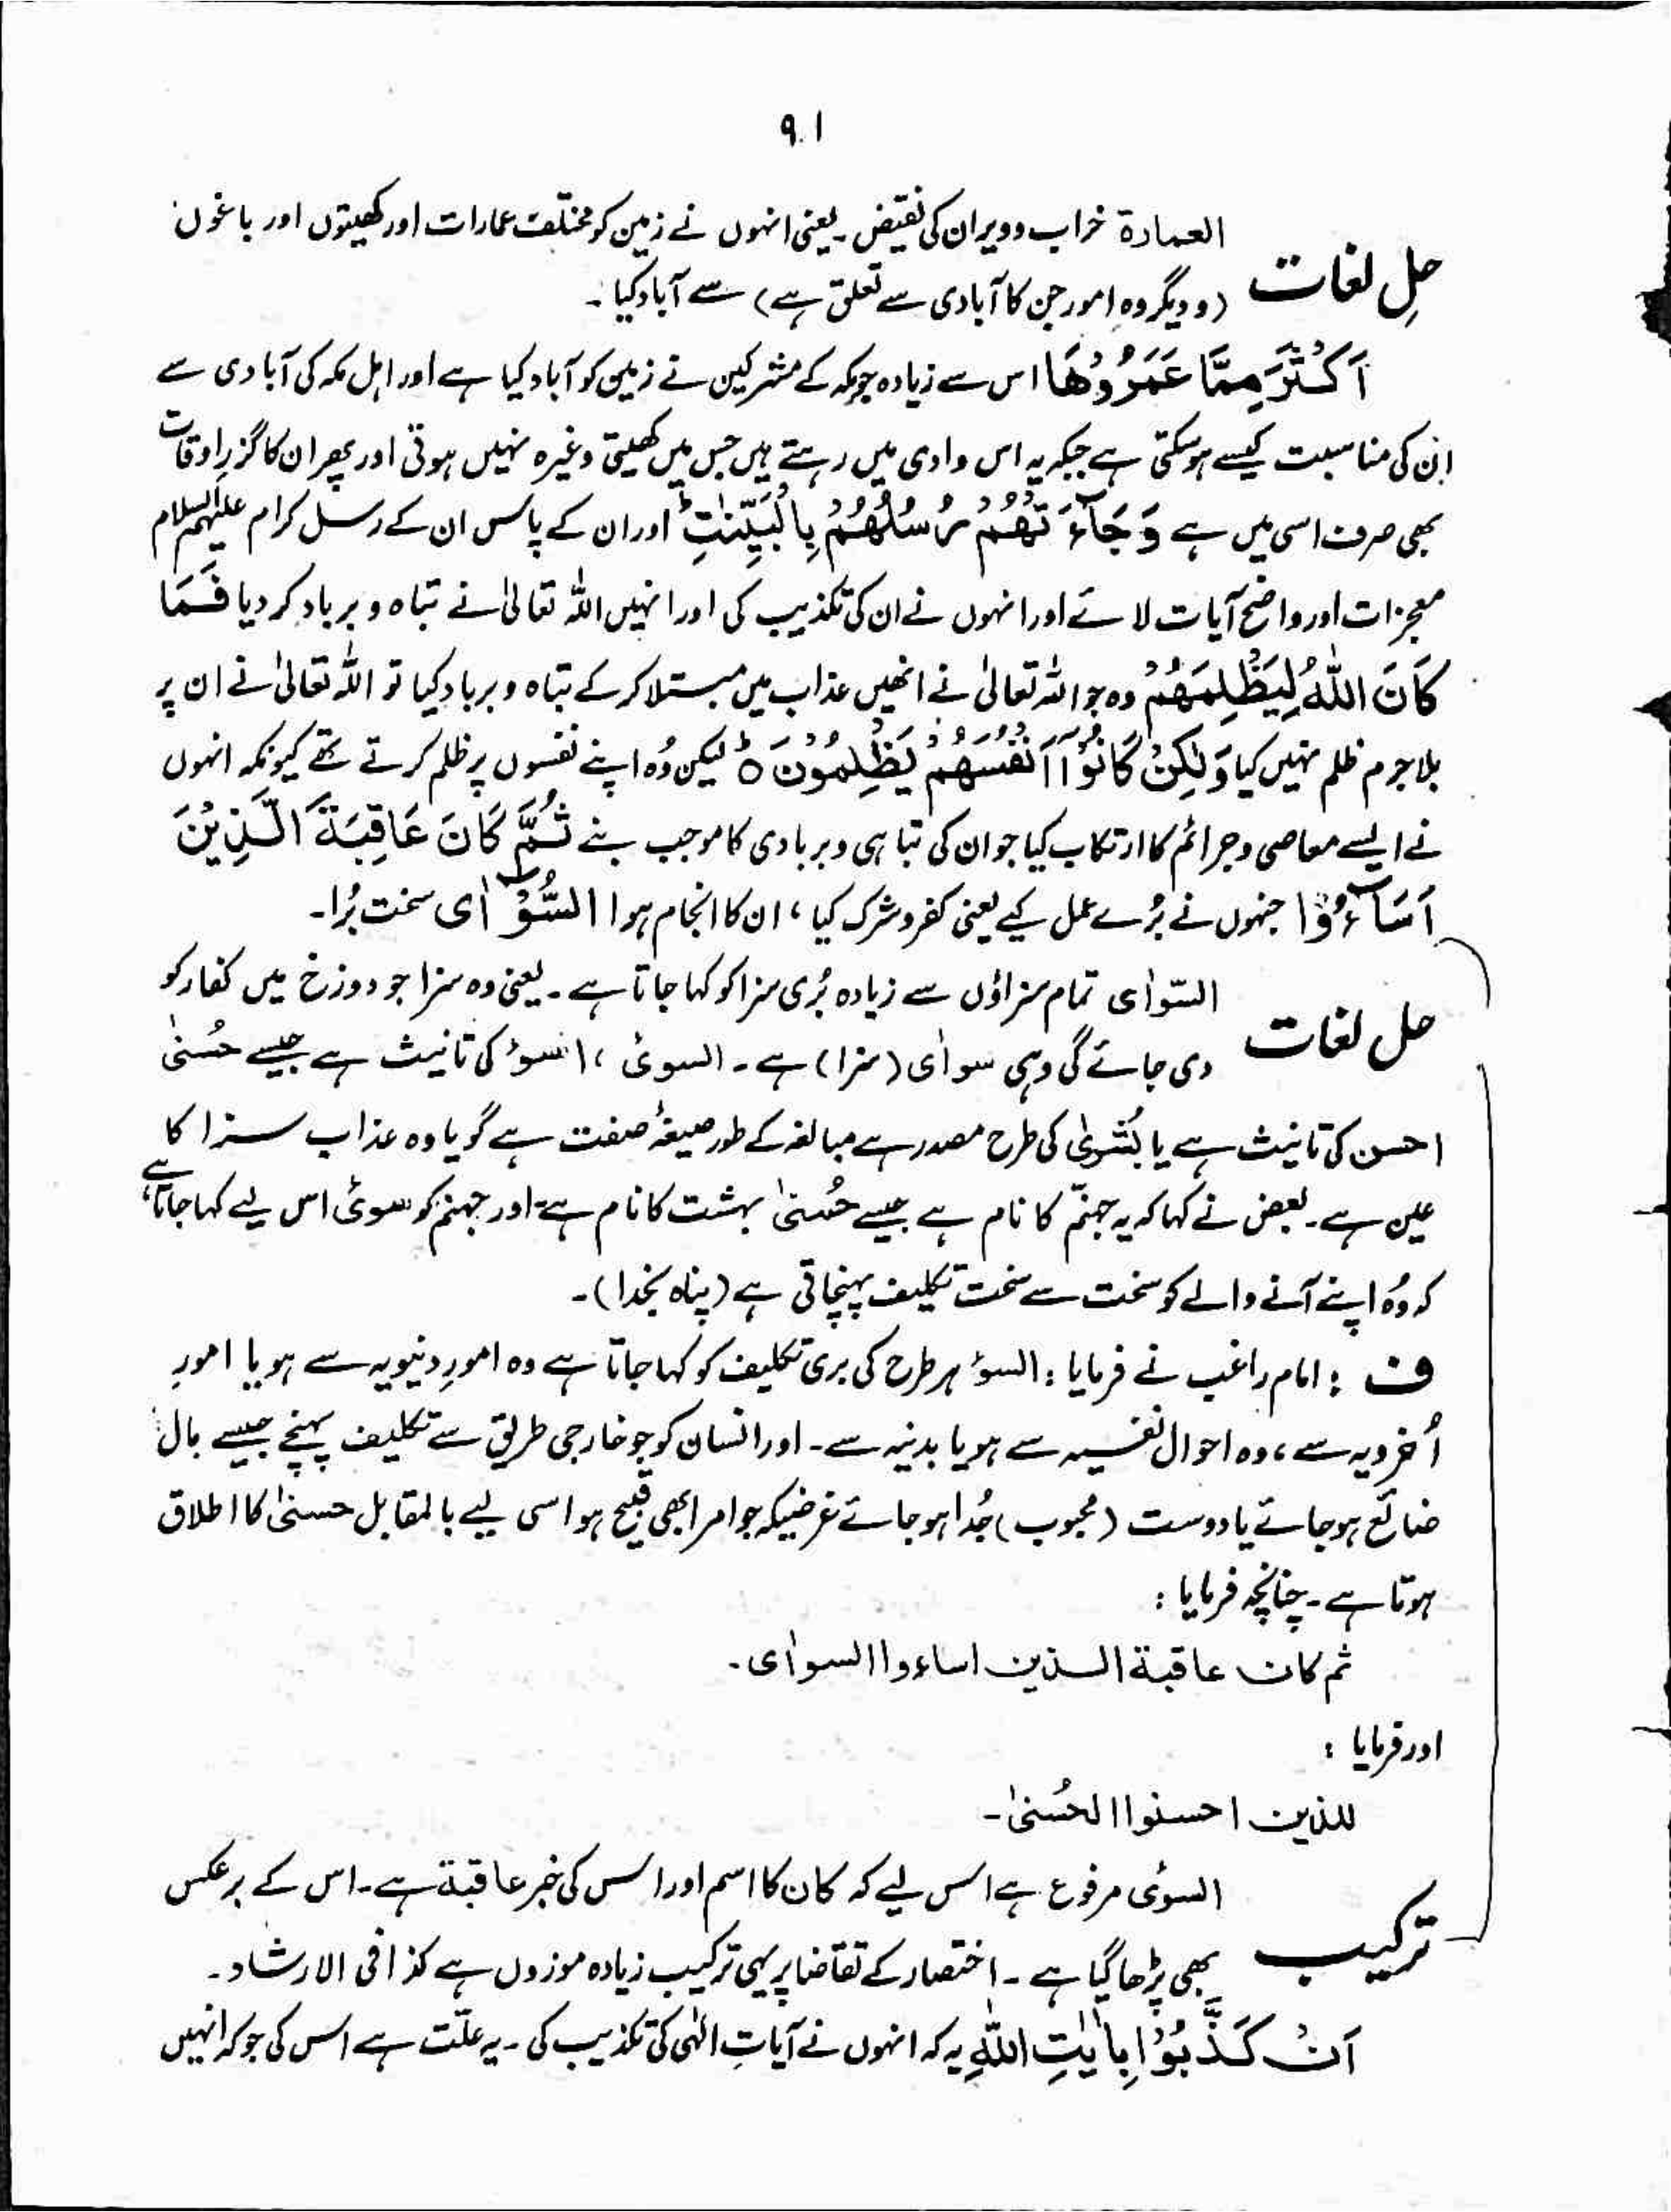 ۹۰۱
العمارۃ خراب و ویران کی نقیض۔ یعنی انہوں نے زمین کو مختلف عمارات اور کھیتوں اور باغوں
حلِ لغات
(و دیگر وہ امور جن کا آبادی سے تعلق ہے) سے آباد کیا۔
اَکْثَرَ مِمَّا عَمَرُوْھَا اس سے زیادہ جو مکہ کے مشرکین نے زمین کو آباد کیا ہے اور اہل مکہ کی آبادی سے
ان کی مناسبت کیسے ہوسکتی ہے جبکہ یہ اس وادی میں رہتے ہیں جس میں کھیتی وغیرہ نہیں ہوتی اور پھر ان کا گزر اوقات
بھی صرف اسی میں ہے وَجَآءَتْھُمْ رُسُلُھُمْ بِالْبَیِّنٰتِ ؕ اور ان کے پاس ان کے رسل کرام علیہم السلام
معجزات اور واضح آیات لائے اور انہوں نے ان کی تکذیب کی اور انہیں اللہ تعالیٰ نے تباہ و برباد کر دیا فَمَا
کَانَ اللّٰہُ لِیَظْلِمَھُمْ وہ جو اللہ تعالیٰ نے انھیں عذاب میں مبتلا کرکے تباہ و برباد کیا تو اللہ تعالیٰ نے ان پر
بلا جرم ظلم نہیں کیا وَلٰکِنْ کَانُوْٓا اَنْفُسَھُمْ یَظْلِمُوْنَ ؕ لیکن وُہ اپنے نفسوں پر ظلم کرتے تھے کیونکہ انہوں
نے ایسے معاصی و جرائم کا ارتکاب کیا جو ان کی تباہی و بربادی کا موجب بنے ثُمَّ کَانَ عَاقِبَۃَ الَّذِیْنَ
اَسَآءُوا جنہوں نے بُرے عمل کیے یعنی کفر و شرک کیا، ان کا انجام ہوا السُّوْٓاٰی سخت بُرا۔
السّواٰی تمام سزاؤں سے زیادہ بُری سزا کو کہا جاتا ہے۔ یعنی وہ سزا جو دوزخ میں کفار کو
حل لغات
دی جائے گی وہی سواٰی (سزا) ہے۔ السوئ، اسوؤ کی تانیث ہے جیسے حُسنیٰ
احسن کی تانیث ہے یا بُشریٰ کی طرح مصدر ہے مبالغہ کے طور صیغۂ صفت ہے گویا وہ عذاب سزا کا
عین ہے۔ بعض نے کہا کہ یہ جہنّم کا نام ہے جیسے حُسنیٰ بہشت کا نام ہے اور جہنم کو سوئی اس لیے کہا جاتا ہے،
کہ وُہ اپنے آنے والے کو سخت سے سخت تکلیف پہنچاتی ہے (پناہ بخدا)۔
ف : امام راغب نے فرمایا : السوؤ ہر طرح کی بری تکلیف کو کہا جاتا ہے وہ امورِ دنیویہ سے ہو یا امورِ
اُخرویہ سے، وہ احوال نفسیہ سے ہو یا بدنیہ سے۔ اور انسان کو جو خارجی طریق سے تکلیف پہنچے جیسے مال
ضائع ہوجائے یا دوست (محبوب) جُدا ہوجائے غرضیکہ جو امر ابھی قبیح ہو اسی لیے بالمقابل حسنیٰ کا اطلاق
ہوتا ہے۔ چنانچہ فرمایا :
ثم کان عاقبۃ الذین اساءوا السواٰی۔
اور فرمایا :
للذین احسنوا الحُسنیٰ۔
السوئی مرفوع ہے اس لیے کہ کان کا اسم اور اس کی خبر عاقبۃ ہے۔ اس کے برعکس
ترکیب
بھی پڑھا گیا ہے۔ اختصار کے تقاضا پر یہی ترکیب زیادہ موزوں ہے کذا فی الارشاد۔
اَنْ کَذَّبُوْا بِاٰیٰتِ اللّٰہِ یہ کہ انہوں نے آیاتِ الٰہی کی تکذیب کی۔ یہ علّت ہے اس کی جو کہ انہیں